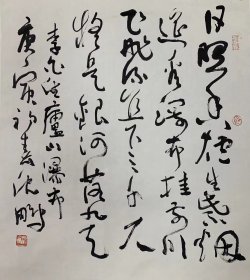 日照香炉生紫烟
遥看瀑布挂前川
飛流直下三千尺
疑是銀河落九天
李白望廬山瀑布
庚寅初春沈鵬